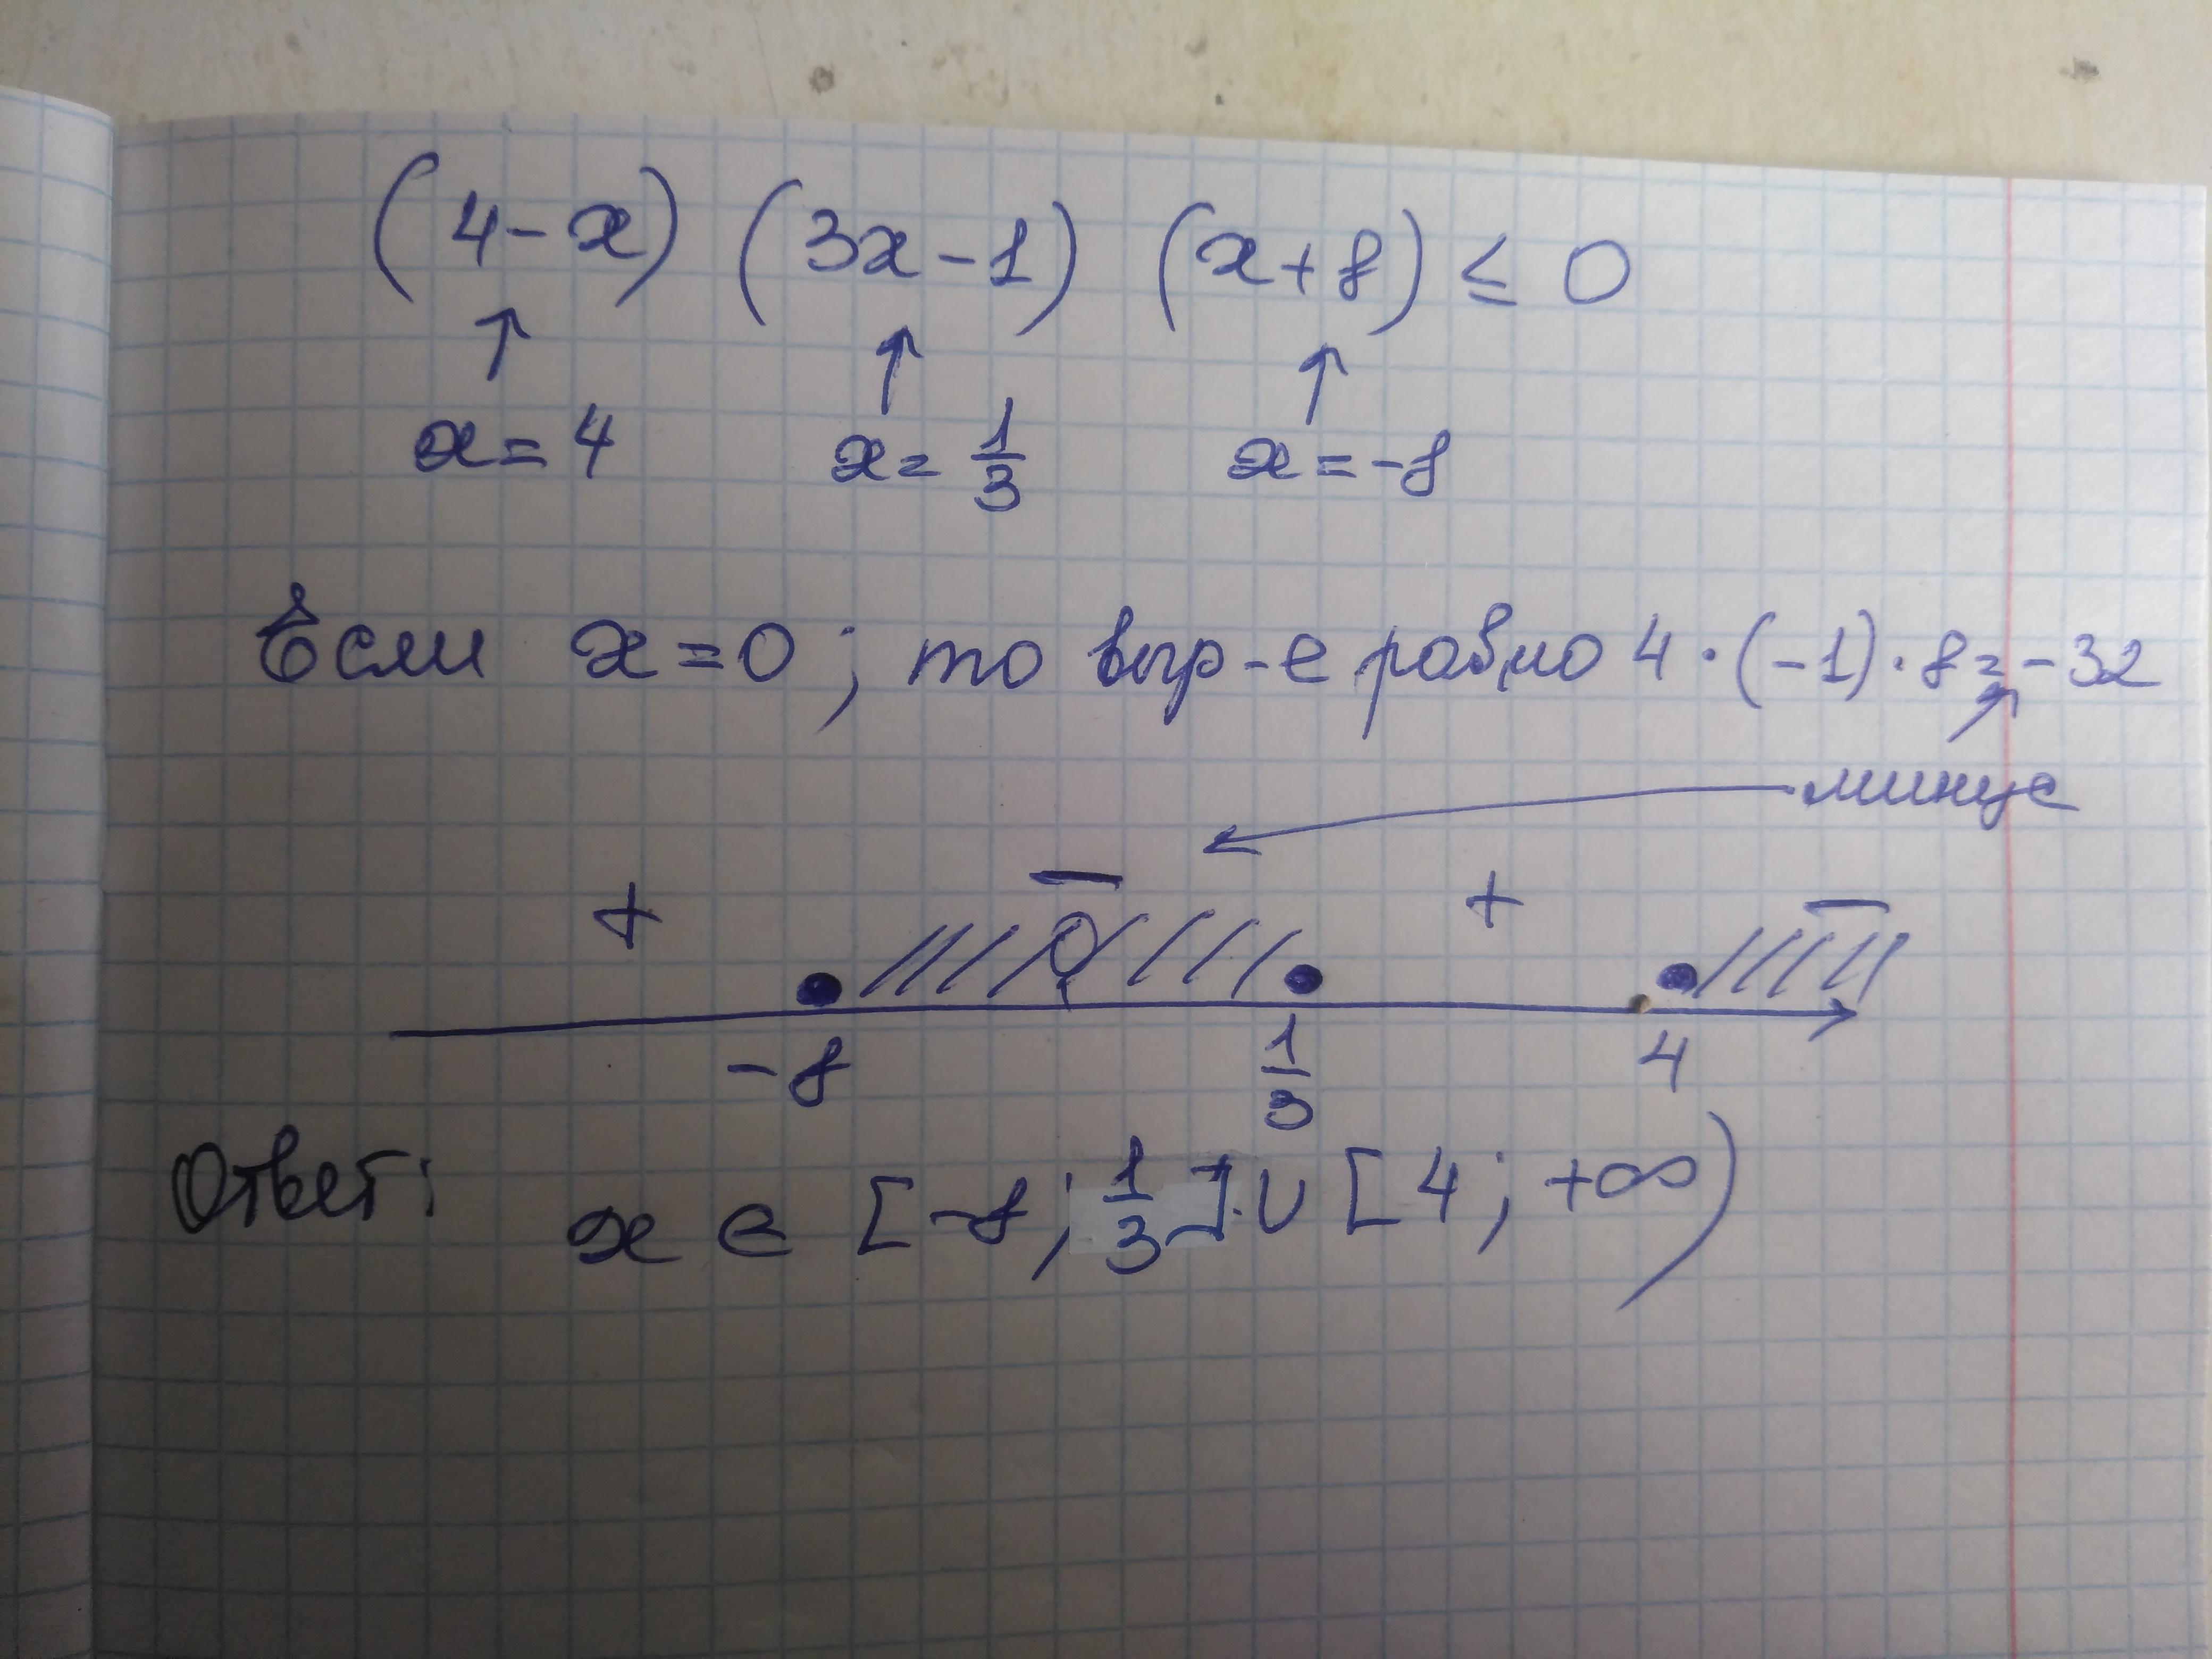 (4-x) (3x-1) (x+8) ≤ 0
↑ ↑ ↑
x=4 x=1/3 x=-8
Если x=0; то выр-е равно 4·(-1)·8=-32
минус
+ - + -
0
-8 1/3 4
Ответ: x ∈ [-8; 1/3] ∪ [4; +∞)